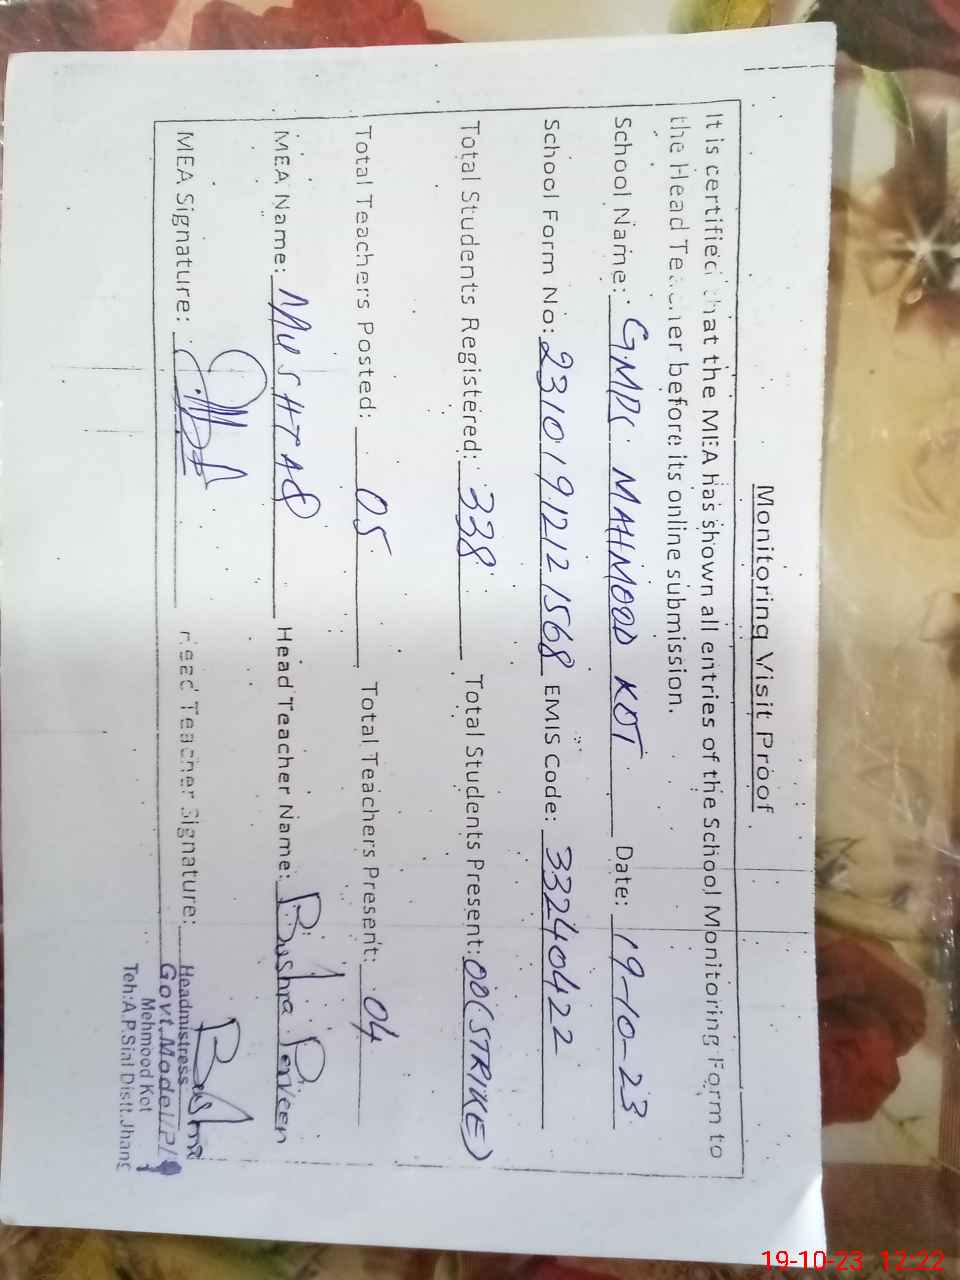 Monitoring Visit Proof
It is certified that the MEA has shown all entries of the School Monitoring Form to
the Head Teacher before its online submission.
School Name: GMPS MAHMOOD KOT Date: 19-10-23
School Form No: 23101912121568 EMIS Code: 33240422
Total Students Registered: 338 Total Students Present: 00 (STRIKE)
Total Teachers Posted: 05 Total Teachers Present: 04
MEA Name: MUSHTAQ Head Teacher Name: Bushra Perveen
MEA Signature: Head Teacher Signature: Bushra
Headmistress
Govt. Model P/S
Mehmood Kot
Teh: A.P.Sial Distt. Jhang
19-10-23 12:22